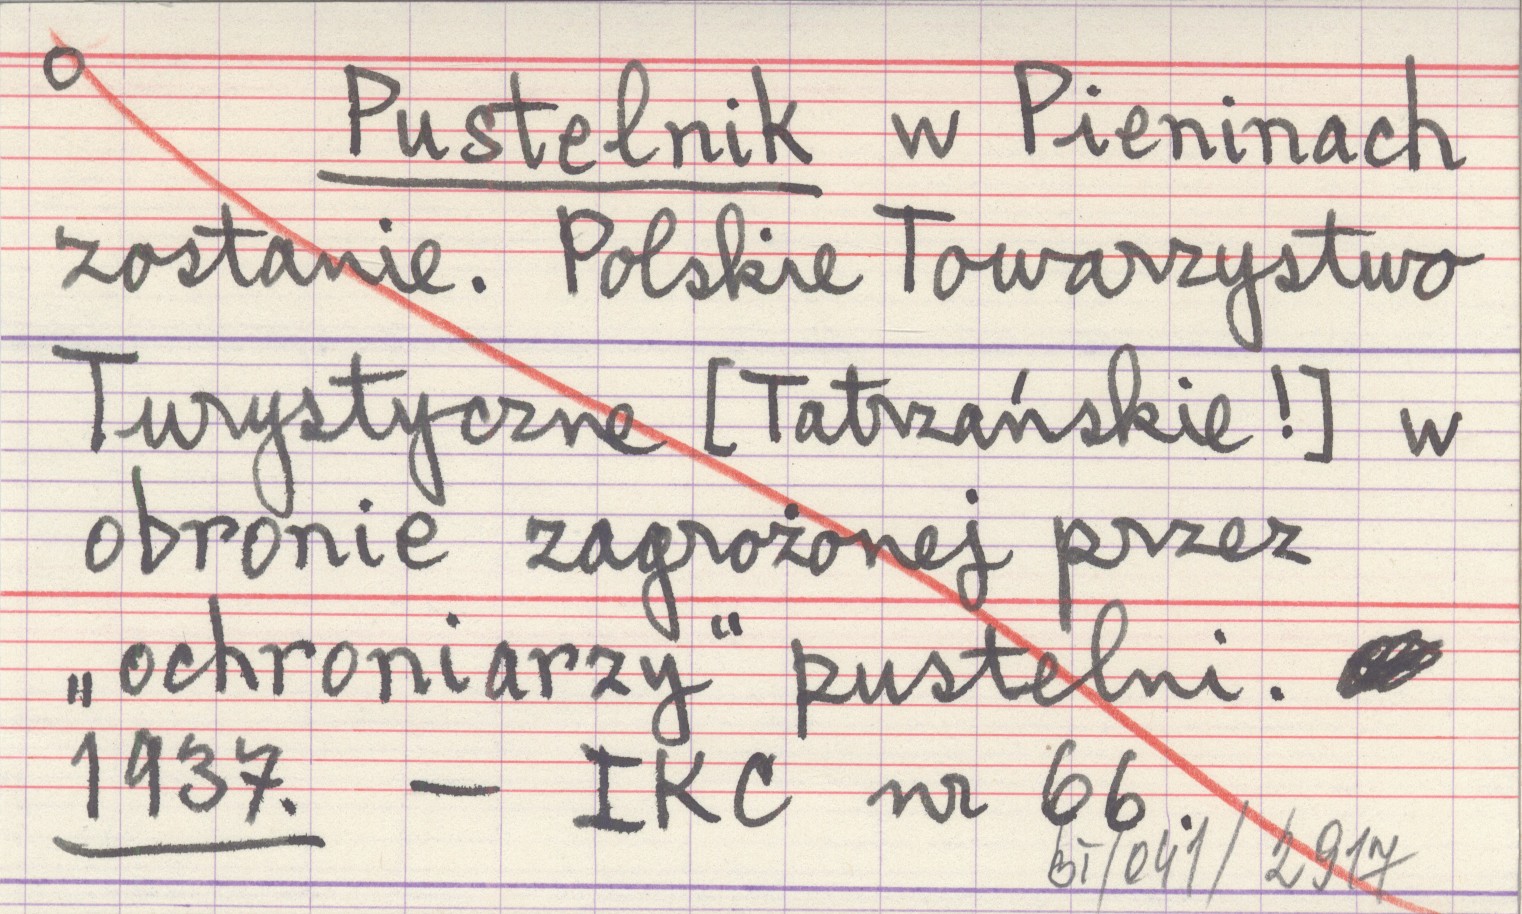 Pustelnik w Pieninach
zostanie. Polskie Towarzystwo
Turystyczne [Tatrzańskie!] w
obronie zagrożonej przez
„ochroniarzy“ pustelni.
1937. — IKC nr 66.
BI/041/2917